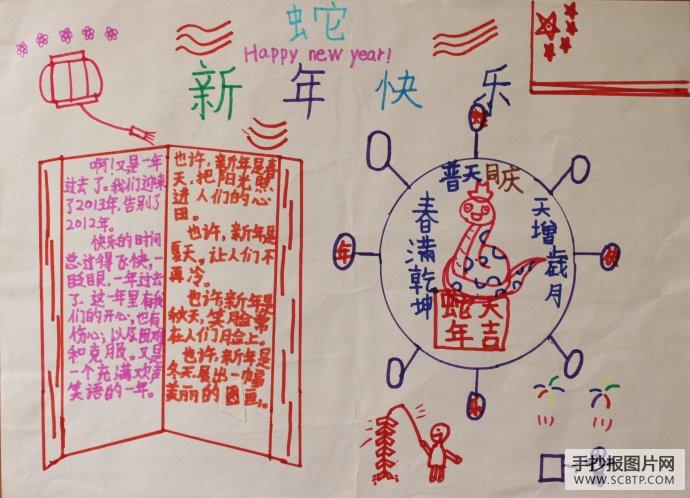 蛇
Happy new year!
新年快乐
啊!又是一年
过去了。我们迎来
了2013年,告别了
2012年。
快乐的时间
总过得飞快,一
眨眼,一年过去
了,这一年里有我
们的开心;也有
伤心;以及困难
和克服。又是
一个充满欢声
笑语的一年。
也许,新年是春
天,把阳光照
进人们的心
田。
也许,新年是
夏天。让人们不
再冷。
也许,新年是
秋天,笑脸常
在人们脸上。
也许,新年是
冬天,展出一幅
美丽的图画。
普天同庆
春满乾坤
天增歲月
蛇大
年吉
年
手抄报图片网
WWW.SCBTP.COM